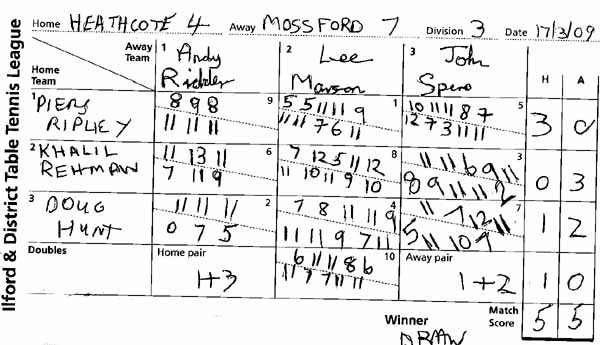 Ilford & District Table Tennis League
Home HEATHCOTE 4 Away MOSSFORD 7 Division 3 Date 17/3/09
Away Team
Home Team
1 Andy
2 Lee Manson
3 John Spero
H A
1 PIERS RIPLEY
8 9 8 9
11 11 11
5 5 11 11 9 1
11 11 7 6 11
10 11 11 8 7 5
12 7 3 11 11
3 0
2 KHALIL REHMANN
11 13 11 6
7 11 9
7 12 5 11 12 8
11 10 11 9 10
11 11 6 9 11 3
8 9 11 11 2
0 3
3 DOUG HUNT
11 11 11 2
0 7 5
7 8 11 11 9 4
11 11 9 7 11
11 7 12 11 7
5 11 10 9
1 2
Doubles
Home pair
1+3
6 11 11 8 6 10
11 7 7 11 11
Away pair
1+2
1 0
Winner
DRAW
Match Score
5 5